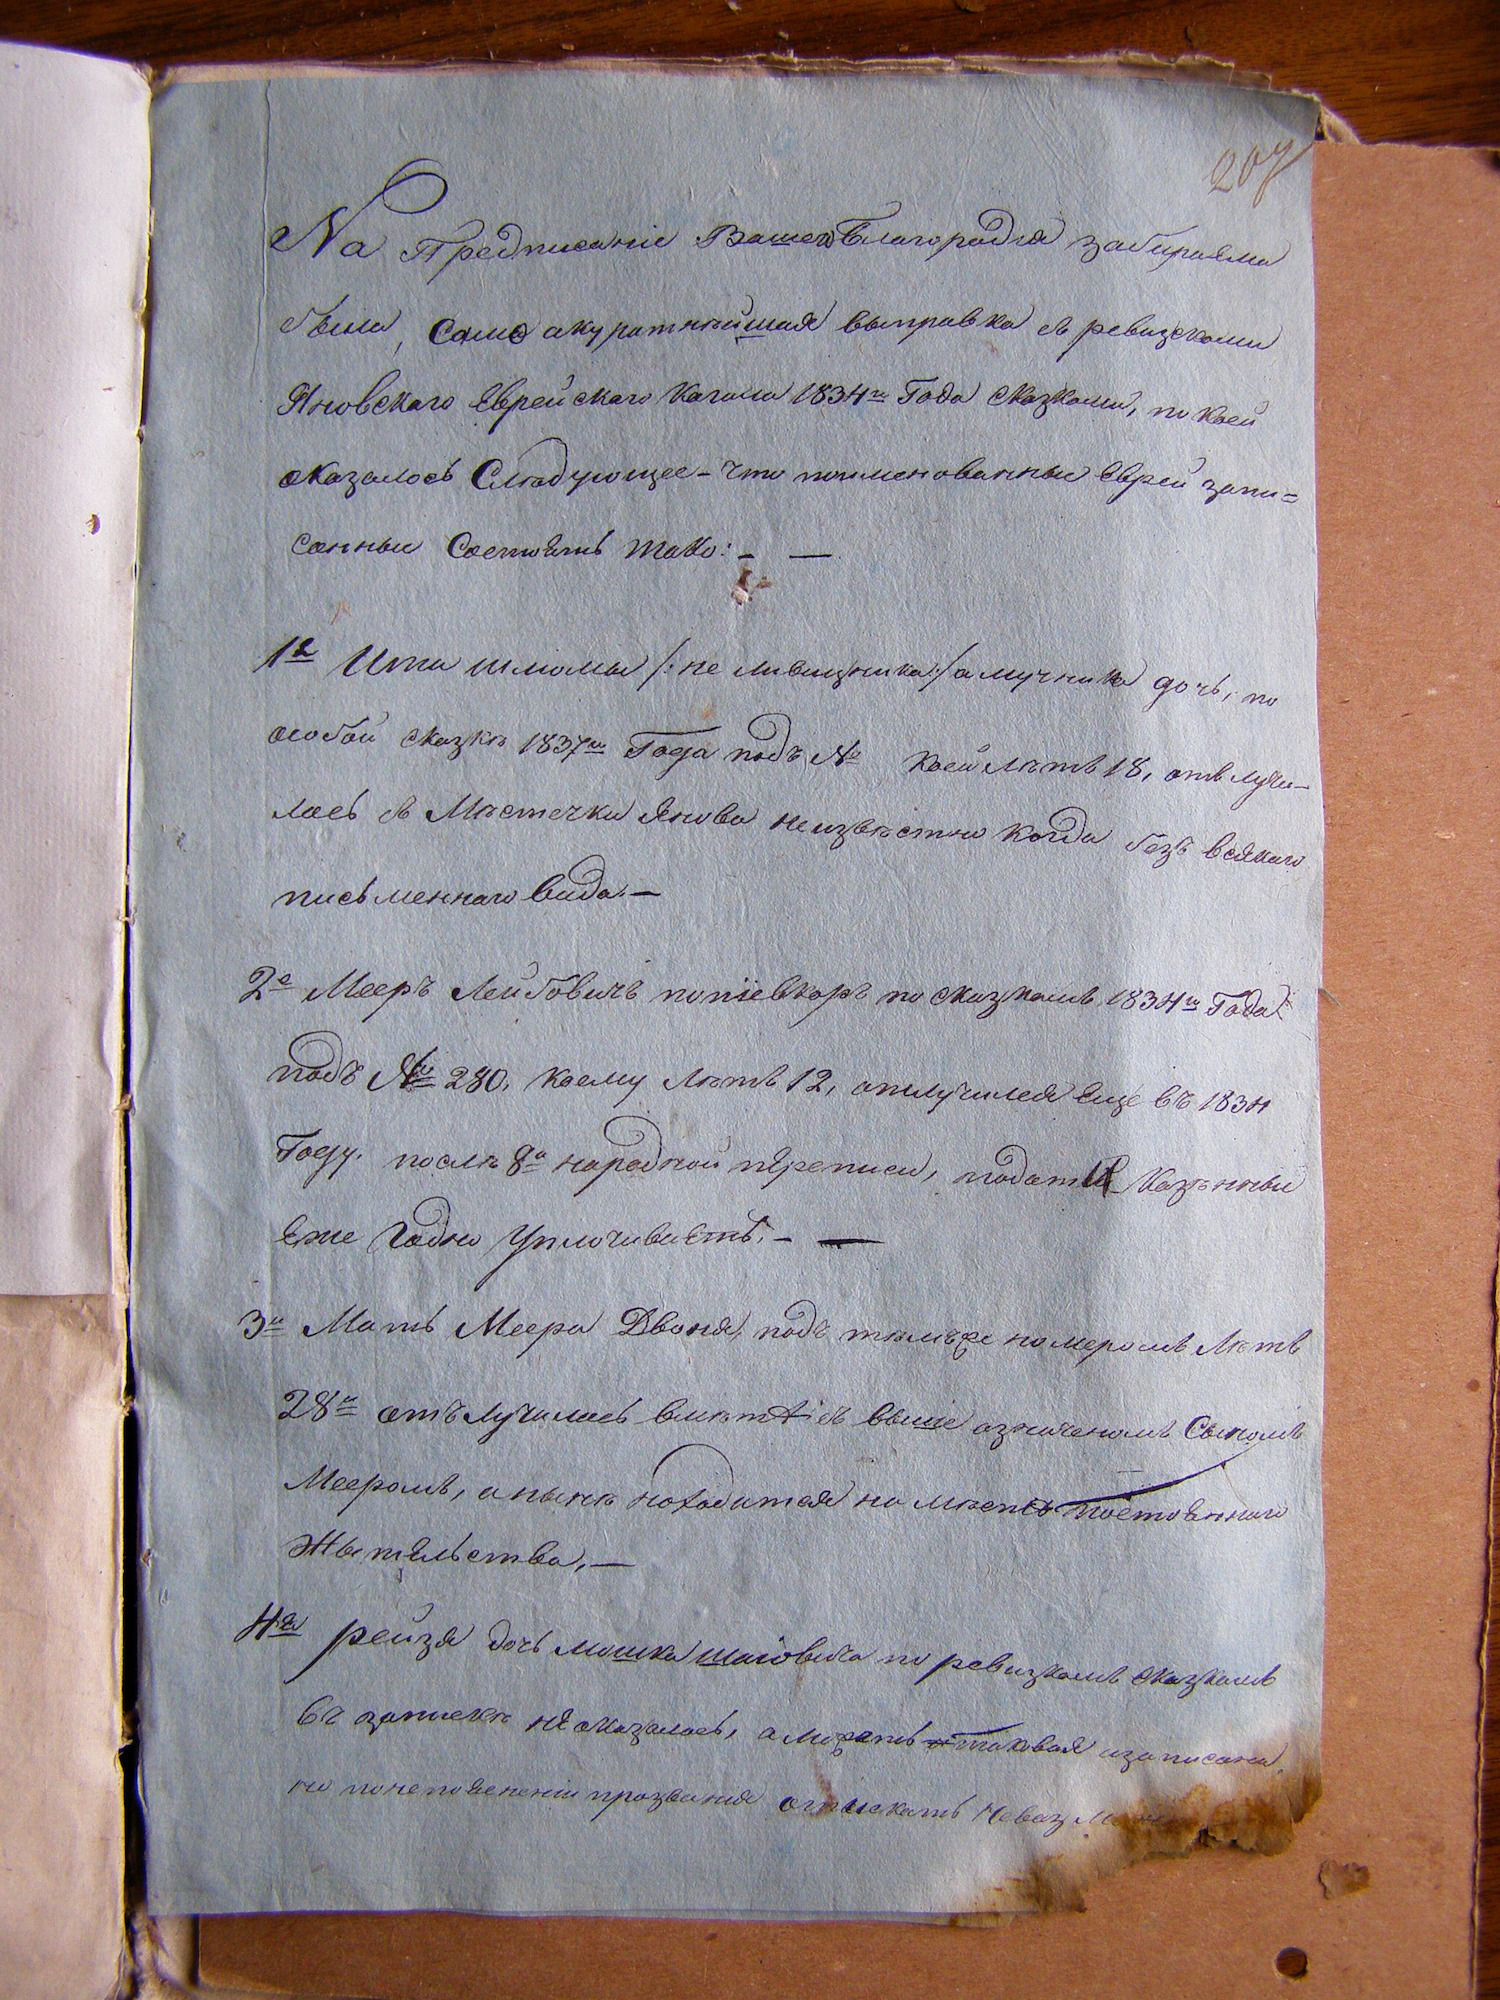 207
На Предписаніе Вашего Благородія забираема
была, само акуратнейшая выправка съ ревизскими
Яновскаго Еврейскаго Кагала 1834го Года сказками, по коей
оказалось Слѣдующее – что поименованные Евреи запи=
санные Состоятъ тако: – —
1я Ита шлюмы /: не ливицника :/ а мучника дочь, по
особой сказкѣ 1837го Года подъ № коей лѣтъ 18, отлучи–
лась съ Мѣстечка Янова неизвѣстно когда безъ всякаго
письменнаго вида. –
2е Мееръ Лейбовичъ по сказкамъ 1834го Года
подъ № 280, коему лѣтъ 12, отлучился еще въ 1834
Году. послѣ 8й народной переписи, податы Казенные
еже Годно Уплочиваетъ. – —
3я Мать Меера Двоня, подъ тѣмъже номеромъ Лѣтъ
28и отъ лучилась вмѣстѣ съ выше означеномъ Сыномъ
Мееромъ, а нынѣ находится на мѣстѣ постоянного
Жытельства, —
4я рейзя дочь мошка шаіовича по ревизкамъ сказкамъ
въ запискѣ не оказалось, а можетъ таковая изаписана,
но по непоясненіи прозванія отыскать невозмо